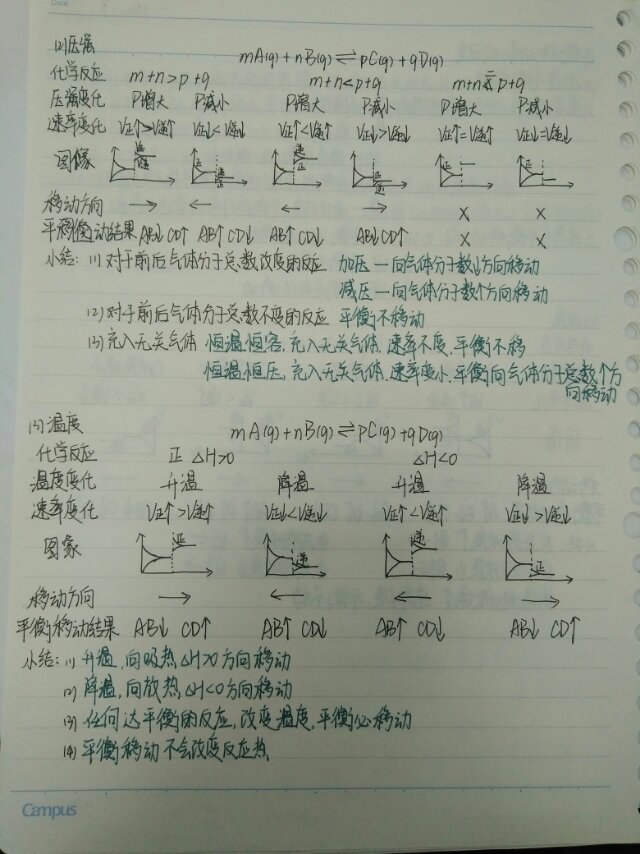 Date
(2)压强
mA(g)+nB(g)⇌pC(g)+qD(g)
化学反应 m+n>p+q m+n<p+q m+n=p+q
压强变化 P增大 P减小 P增大 P减小 P增大 P减小
速率变化 V正↑>V逆↑ V正↓<V逆↓ V正↑<V逆↑ V正↓>V逆↓ V正↑=V逆↑ V正↓=V逆↓
图像
移动方向 → ← ← → × ×
平衡移动结果 AB↓ CD↑ AB↑ CD↓ AB↑ CD↓ AB↓ CD↑ × ×
小结：(1) 对于前后气体分子总数改变的反应 加压—向气体分子数↓方向移动
减压—向气体分子数↑方向移动
(2) 对于前后气体分子总数不变的反应 平衡不移动
(3) 充入无关气体 恒温恒容，充入无关气体，速率不变，平衡不移
恒温恒压，充入无关气体，速率变小，平衡向气体分子总数↑方
向移动
(3)温度 mA(g)+nB(g)⇌pC(g)+qD(g)
化学反应 正 △H>0 △H<0
温度变化 升温 降温 升温 降温
速率变化 V正↑>V逆↑ V正↓<V逆↓ V正↑<V逆↑ V正↓>V逆↓
图象 正 逆 逆 正
移动方向 → ← ← →
平衡移动结果 AB↓ CD↑ AB↑ CD↓ AB↑ CD↓ AB↓ CD↑
小结：(1) 升温，向吸热△H>0方向移动
(2) 降温，向放热△H<0方向移动
(3) 任何达平衡的反应，改变温度，平衡必移动
(4) 平衡移动不会改变反应热
Campus